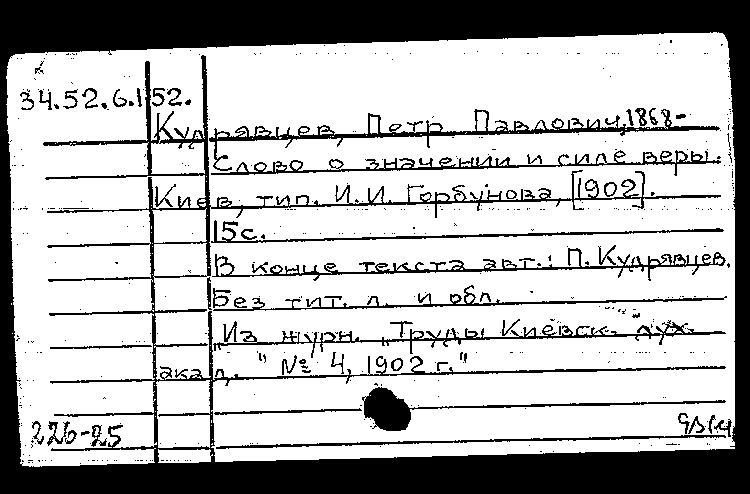 34.52.6.152.
Кудрявцев, Петр Павлович, 1868-
Слово о значении и силе веры.
Киев, тип. И.И. Горбунова, [1902].
15с.
В конце текста авт.: П. Кудрявцев.
Без тит. л. и обл.
„Из журн. „Труды Киевск. дух.
акад." № 4, 1902 г."
226-25